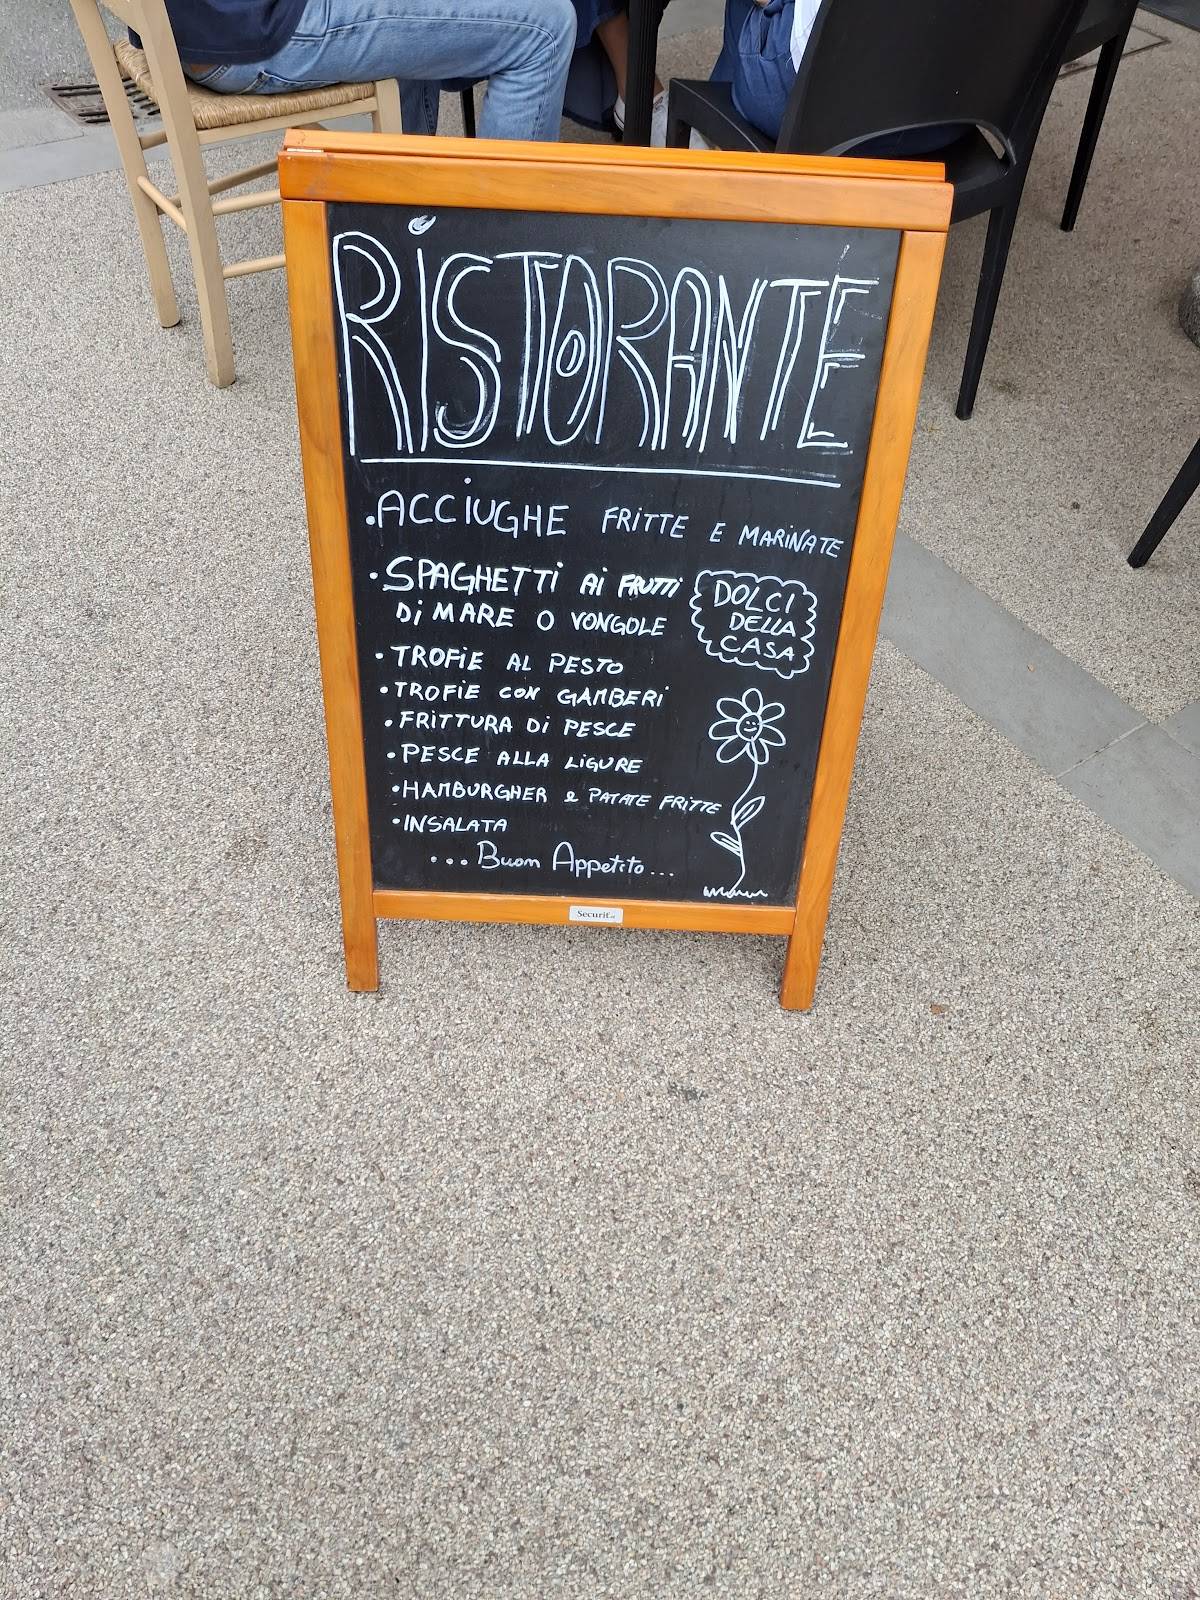 RiSTORANTE
•ACCiUGHE FRiTTE E MARiNATE
•SPAGHETTi Ai FRUTTi
Di MARE O VONGOLE
DOLCI
DELLA
CASA
•TROFiE AL PESTO
•TROFIE CON GAMBERi
•FRiTTURA Di PESCE
•PESCE ALLA LiGURE
•HAMBURGHER e PATATE FRiTTE
•INSALATA
...Buon Appetito...
Securit